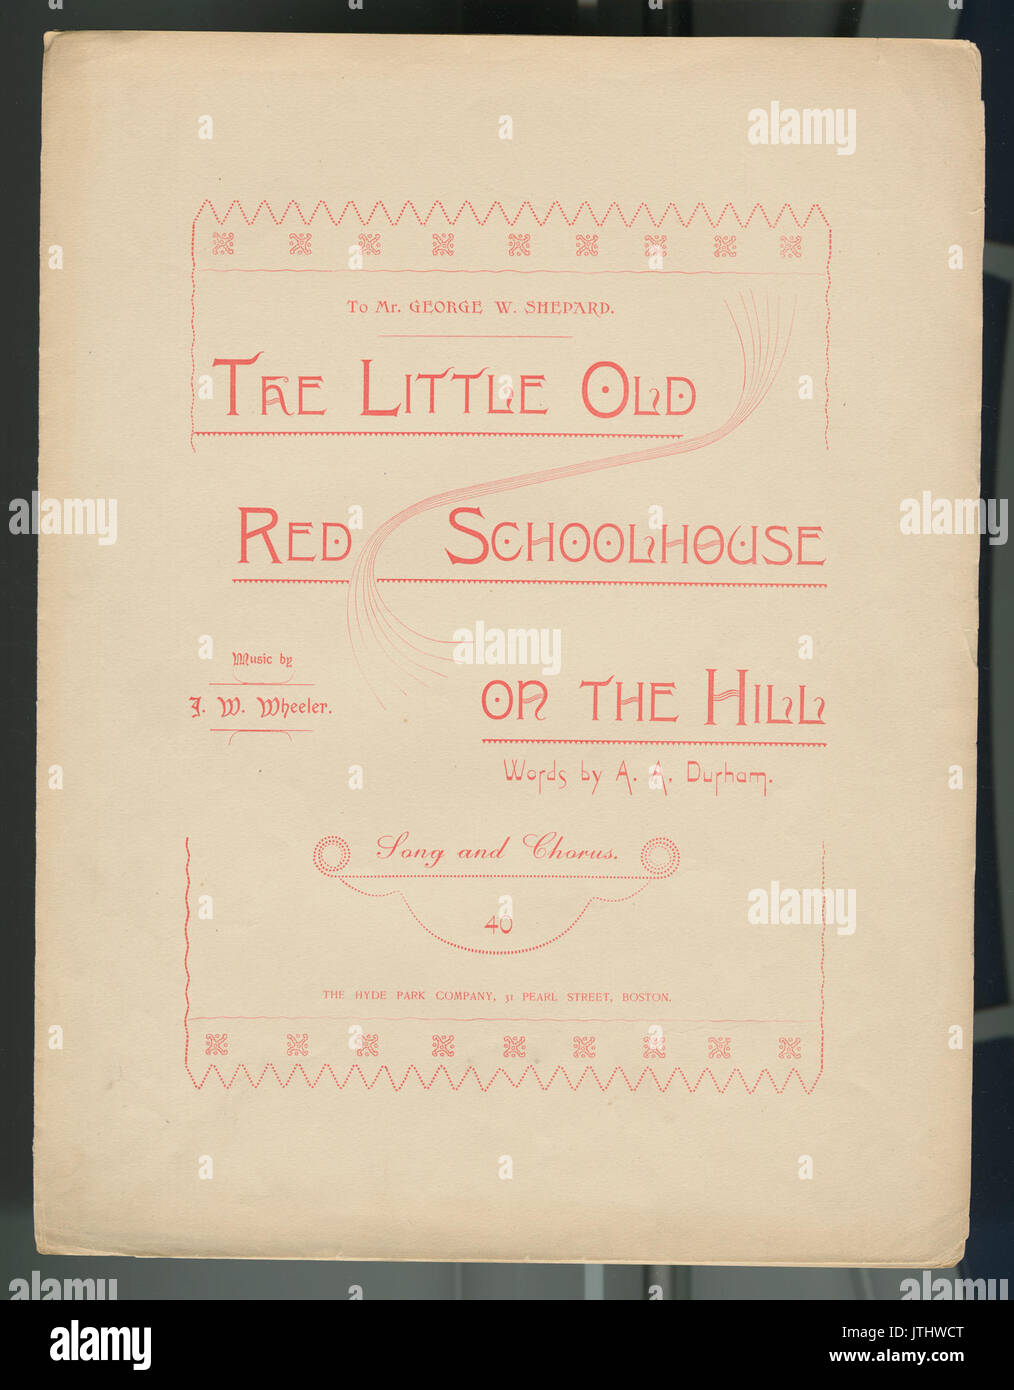 To Mr. GEORGE W. SHEPARD.
THE LITTLE OLD
RED SCHOOLHOUSE
ON THE HILL
Music by
J. W. Wheeler.
Words by A. A. Durham.
Song and Chorus.
40
THE HYDE PARK COMPANY, 31 PEARL STREET, BOSTON.
alamy
alamy
alamy
alamy
alamy
alamy
Image ID: JTHWCT
www.alamy.com